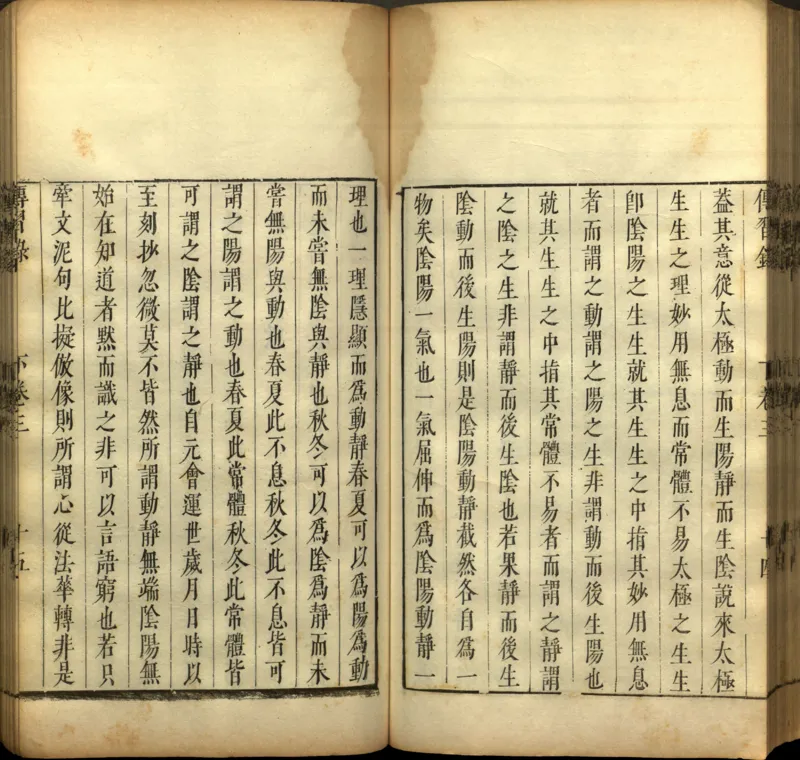 傳習錄 下卷三 十四
蓋其意從太極動而生陽靜而生陰說來太極
生生之理妙用無息而常體不易太極之生生
卽陰陽之生生就其生生之中指其妙用無息
者而謂之動謂之陽之生非謂動而後生陽也
就其生生之中指其常體不易者而謂之靜謂
之陰之生非謂靜而後生陰也若果靜而後生
陰動而後生陽則是陰陽動靜截然各自為一
物矣陰陽一氣也一氣屈伸而為陰陽動靜一
理也一理隱顯而為動靜春夏可以為陽為動
而未嘗無陰與靜也秋冬可以為陰為靜而未
嘗無陽與動也春夏此不息秋冬此不息皆可
謂之陽謂之動也春夏此常體秋冬此常體皆
可謂之陰謂之靜也自元會運世歲月日時以
至刻抄忽微莫不皆然所謂動靜無端陰陽無
始在知道者黙而識之非可以言語窮也若只
牽文泥句比擬倣像則所謂心從法華轉非是
傳習錄 下卷三 十五